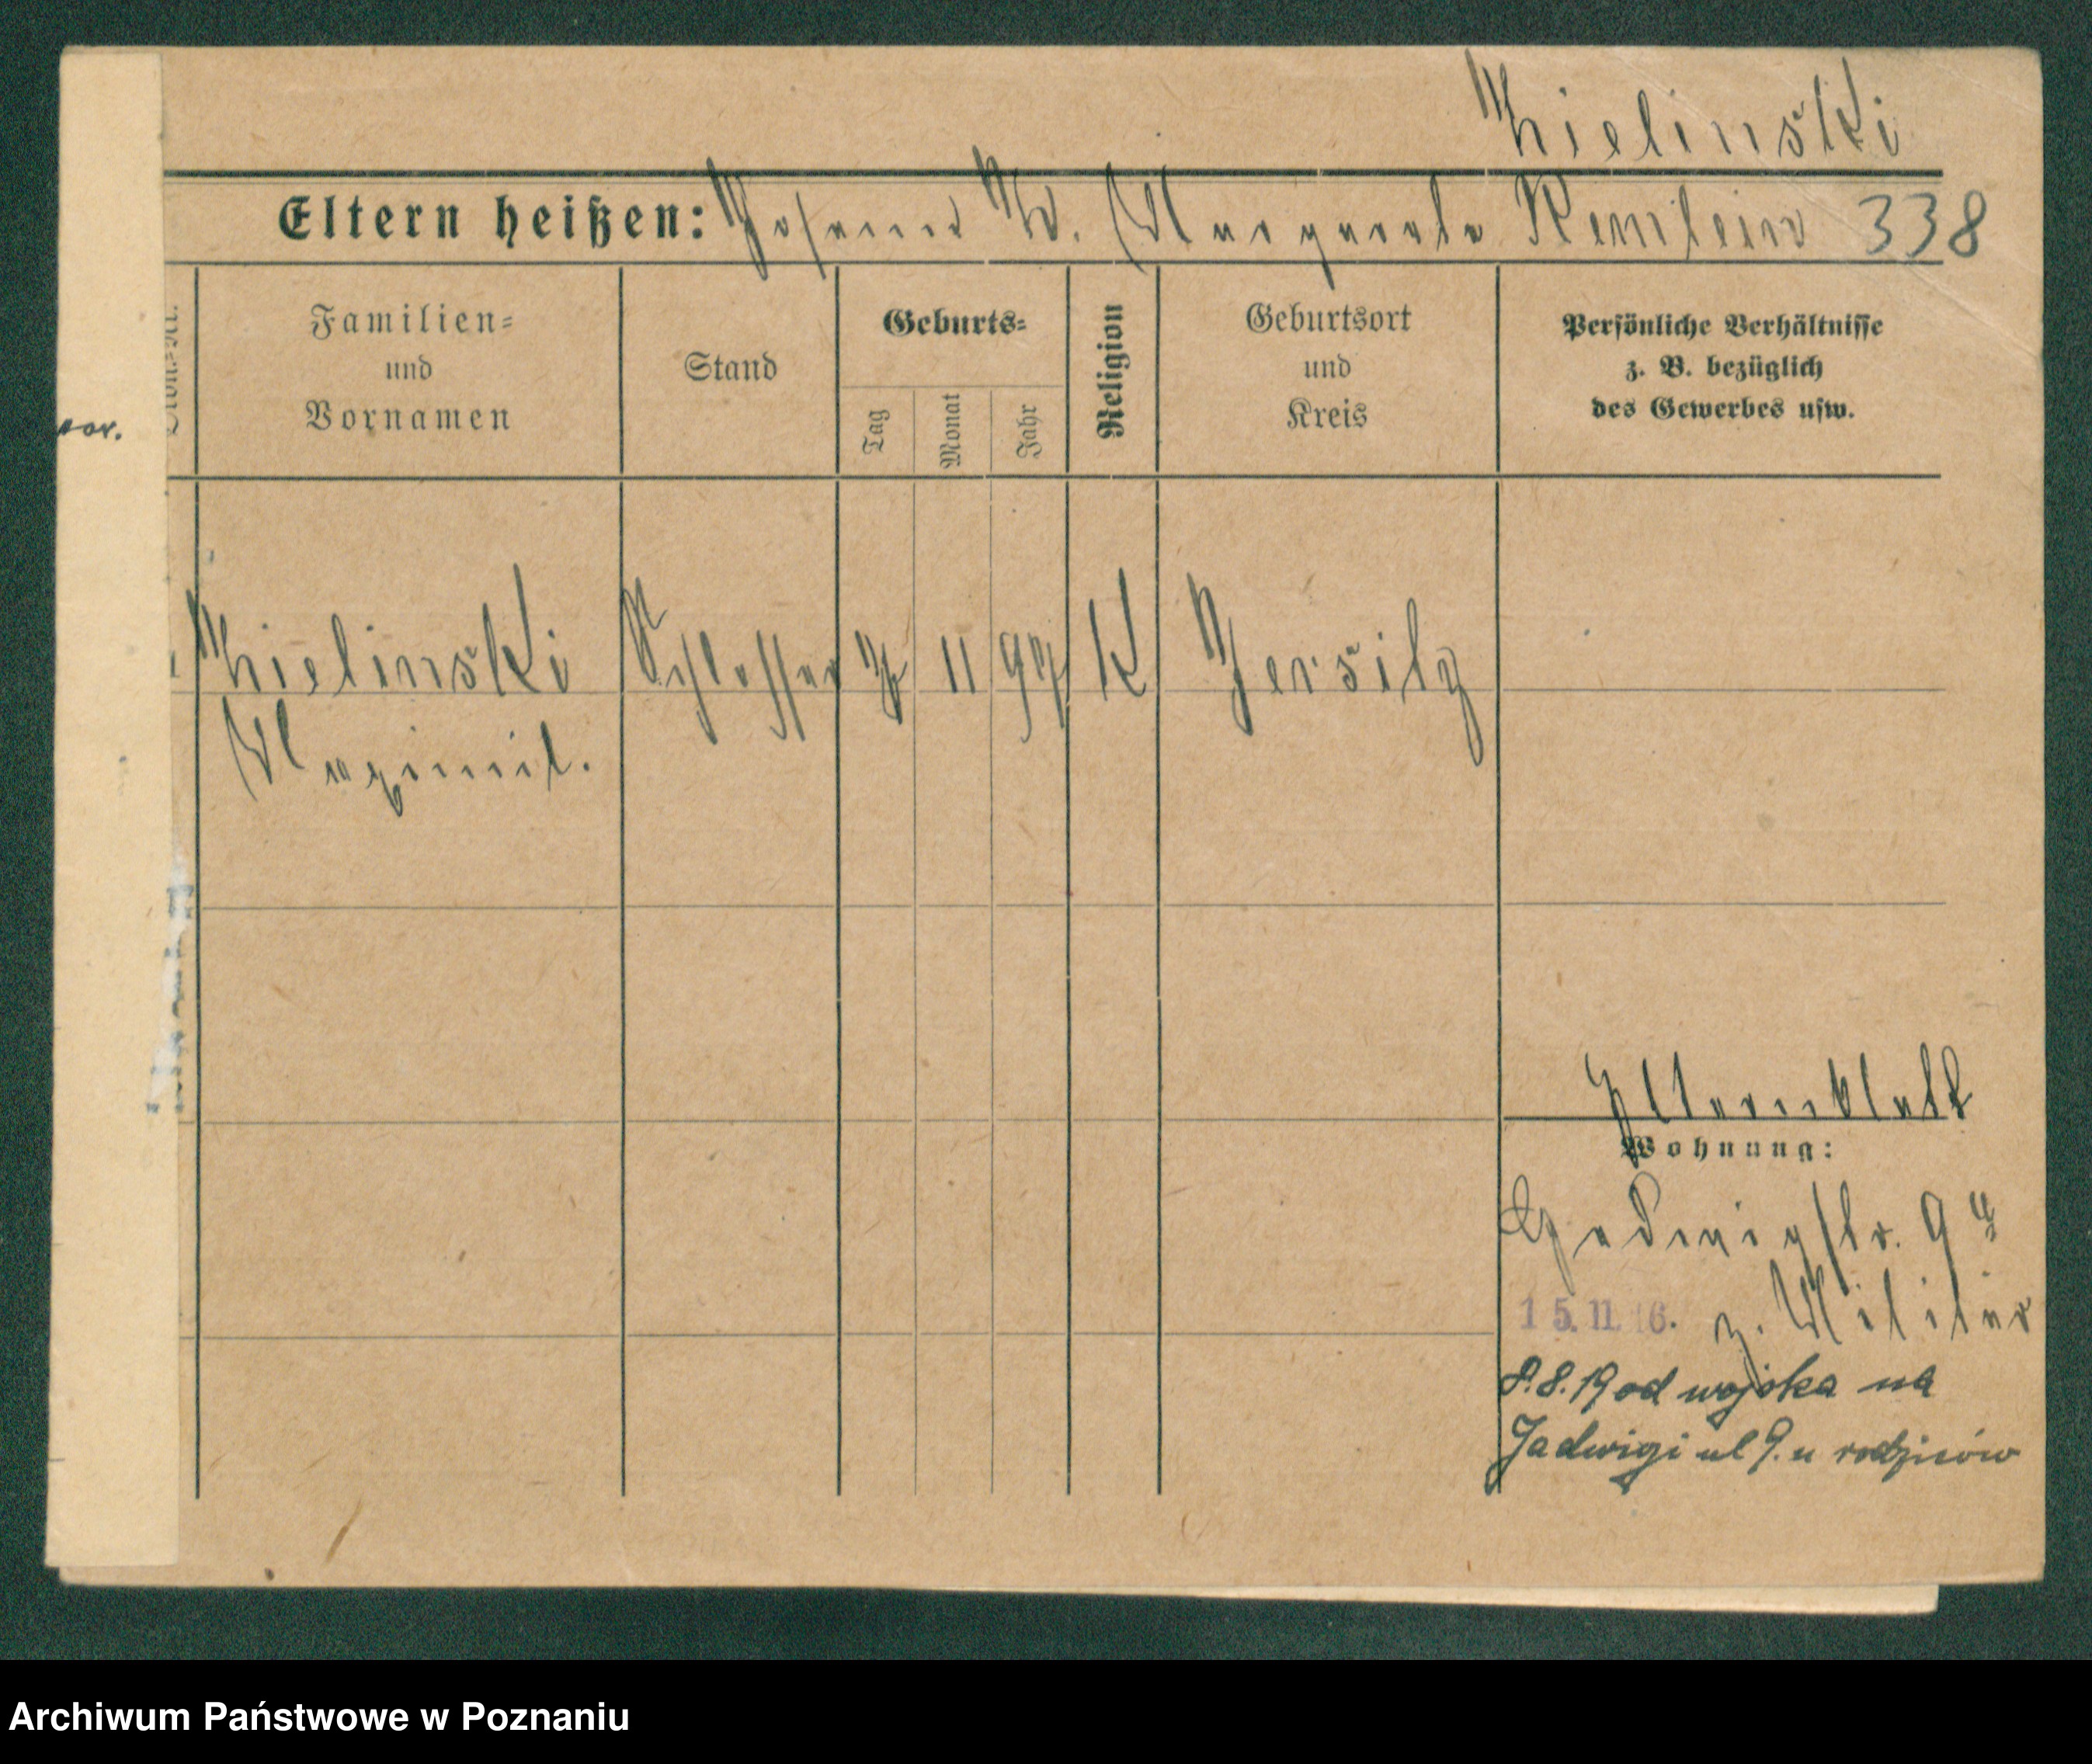 Thielinski
Eltern heißen: Johann Th. Margarete Remlein 338
Familien=
und
Vornamen
Stand
Geburts=
Tag
Monat
Jahr
Religion
Geburtsort
und
Kreis
Persönliche Verhältnisse
z. B. bezüglich
des Gewerbes usw.
Thielinski Schlosser 11 97 K Jersitz
Maximil.
Elternblatt
Wohnung:
Hedwigstr. 9
15. 11. 16. z. Militär
8.8.19 od wojska na
Jadwigi ul 9. u rodziców
Archiwum Państwowe w Poznaniu